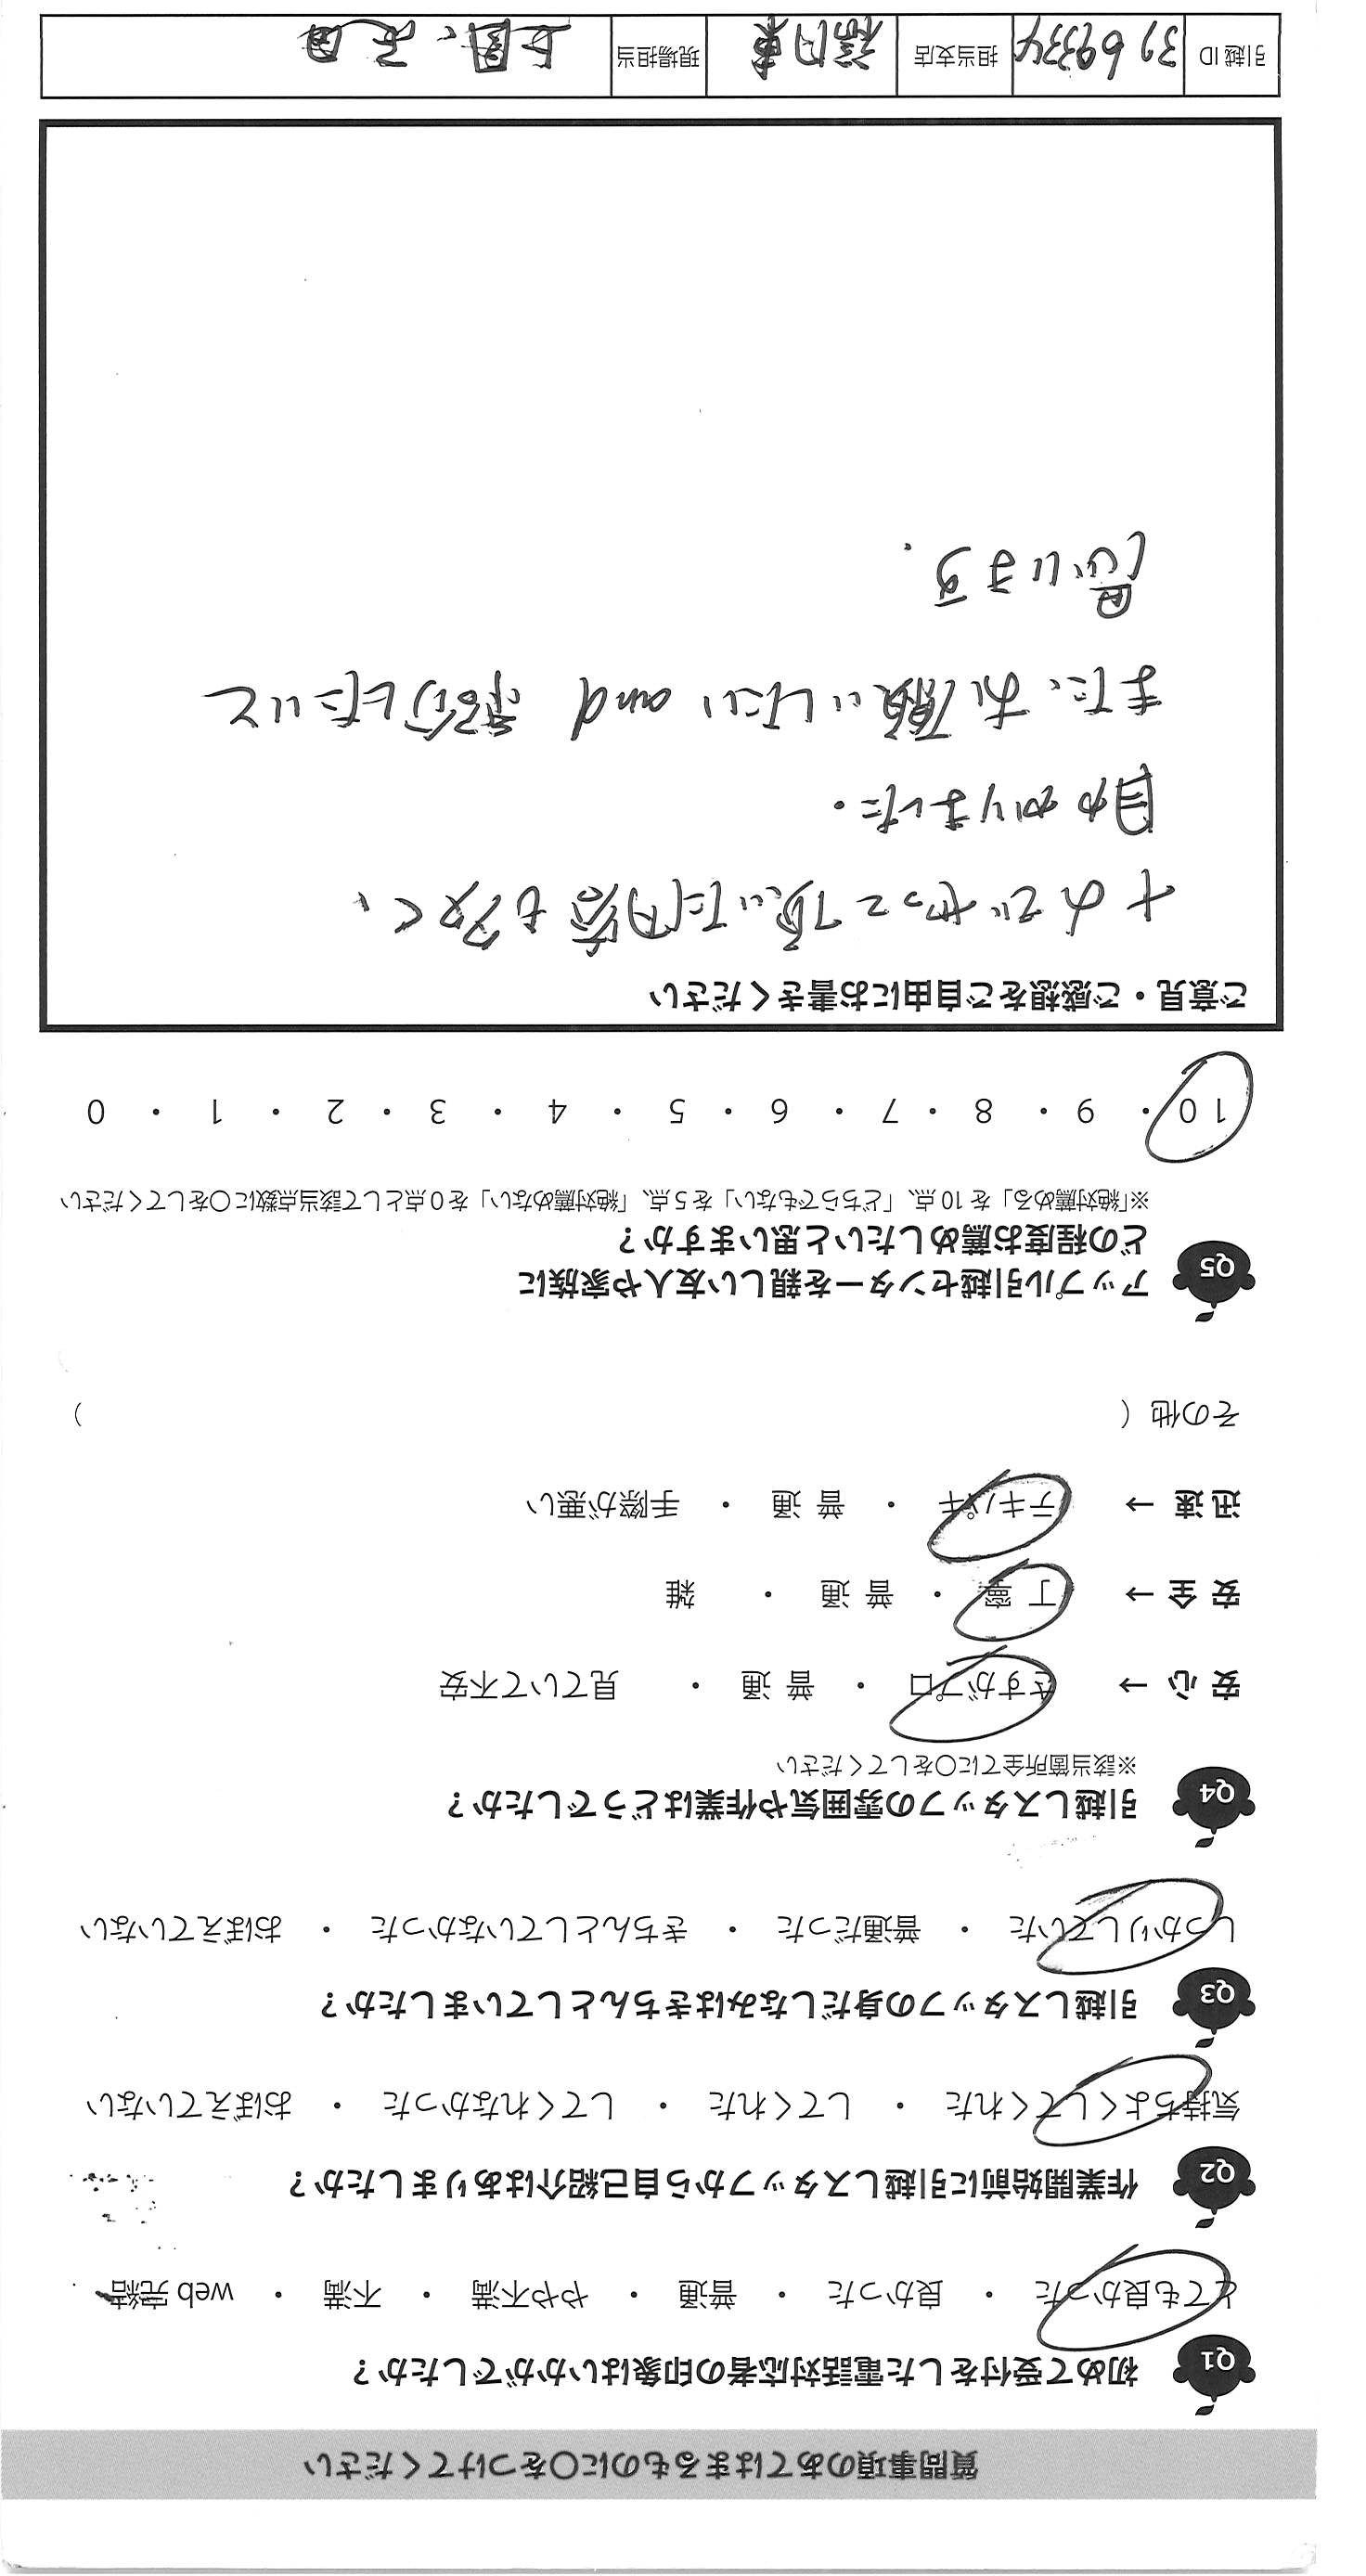 質問事項のあてはまるものに○をつけてください
Q1 初めて受付をした電話対応者の印象はいかがでしたか？
とても良かった ・ 良かった ・ 普通 ・ やや不満 ・ 不満 ・ web 完結
Q2 作業開始前に引越しスタッフから自己紹介はありましたか？
気持ちよくしてくれた ・ してくれた ・ してくれなかった ・ おぼえていない
Q3 引越しスタッフの身だしなみはきちんとしていましたか？
しっかりしていた ・ 普通だった ・ きちんとしていなかった ・ おぼえていない
Q4 引越しスタッフの雰囲気や作業はどうでしたか？
※該当箇所全てに○をしてください
安 心 → さすがプロ ・ 普 通 ・ 見ていて不安
安 全 → 丁 寧 ・ 普 通 ・ 雑
迅 速 → テキパキ ・ 普 通 ・ 手際が悪い
その他（ ）
Q5 アップル引越センターを親しい友人や家族に
どの程度お薦めしたいと思いますか？
※「絶対薦める」を 10 点、「どちらでもない」を 5 点、「絶対薦めない」を 0 点として該当点数に○をしてください
10 ・ 9 ・ 8 ・ 7 ・ 6 ・ 5 ・ 4 ・ 3 ・ 2 ・ 1 ・ 0
ご意見・ご感想をご自由にお書きください
やって頂いた内容も多く、
かりました.
また、お願いしたい and 紹介したいと
思います.
引越 ID 担当支店 福岡東 現場担当